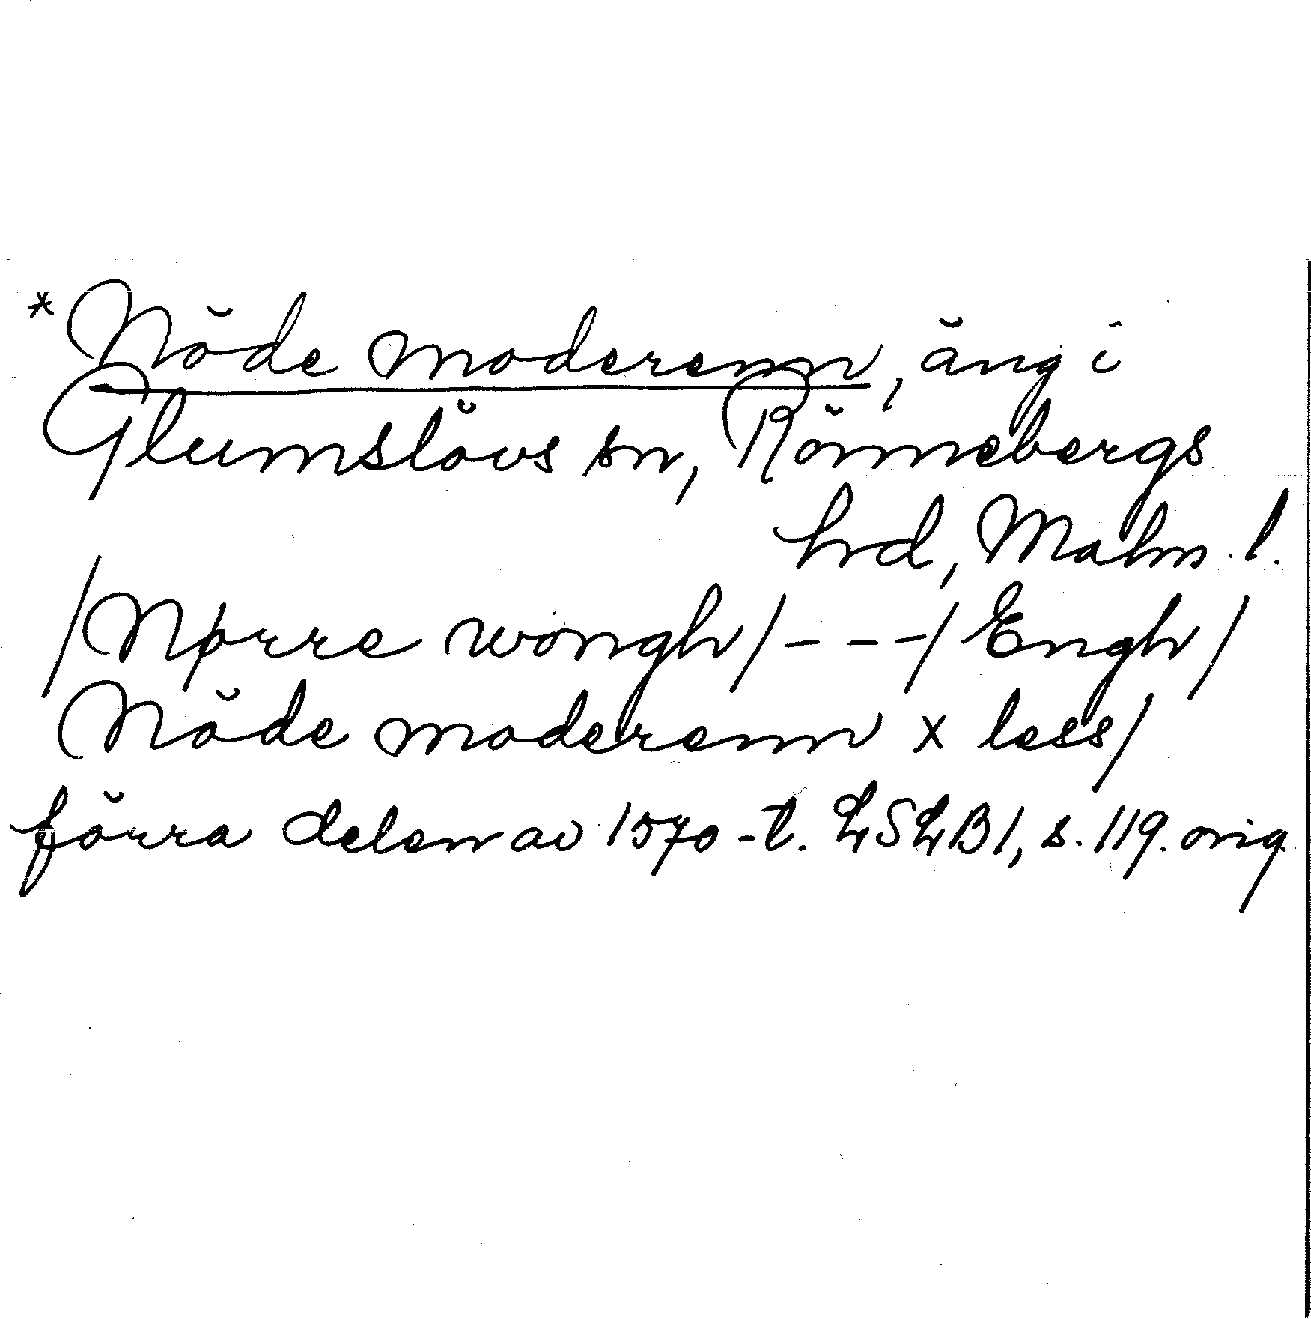 *Nöde moderenn, äng i
Glumslövs sn, Rönnebergs
hrd, Malm. l.
/Nørre wongh/---/Engh/
Nöde moderenn x less/
förra delen av 1570-t. LSLB1, s. 119. orig